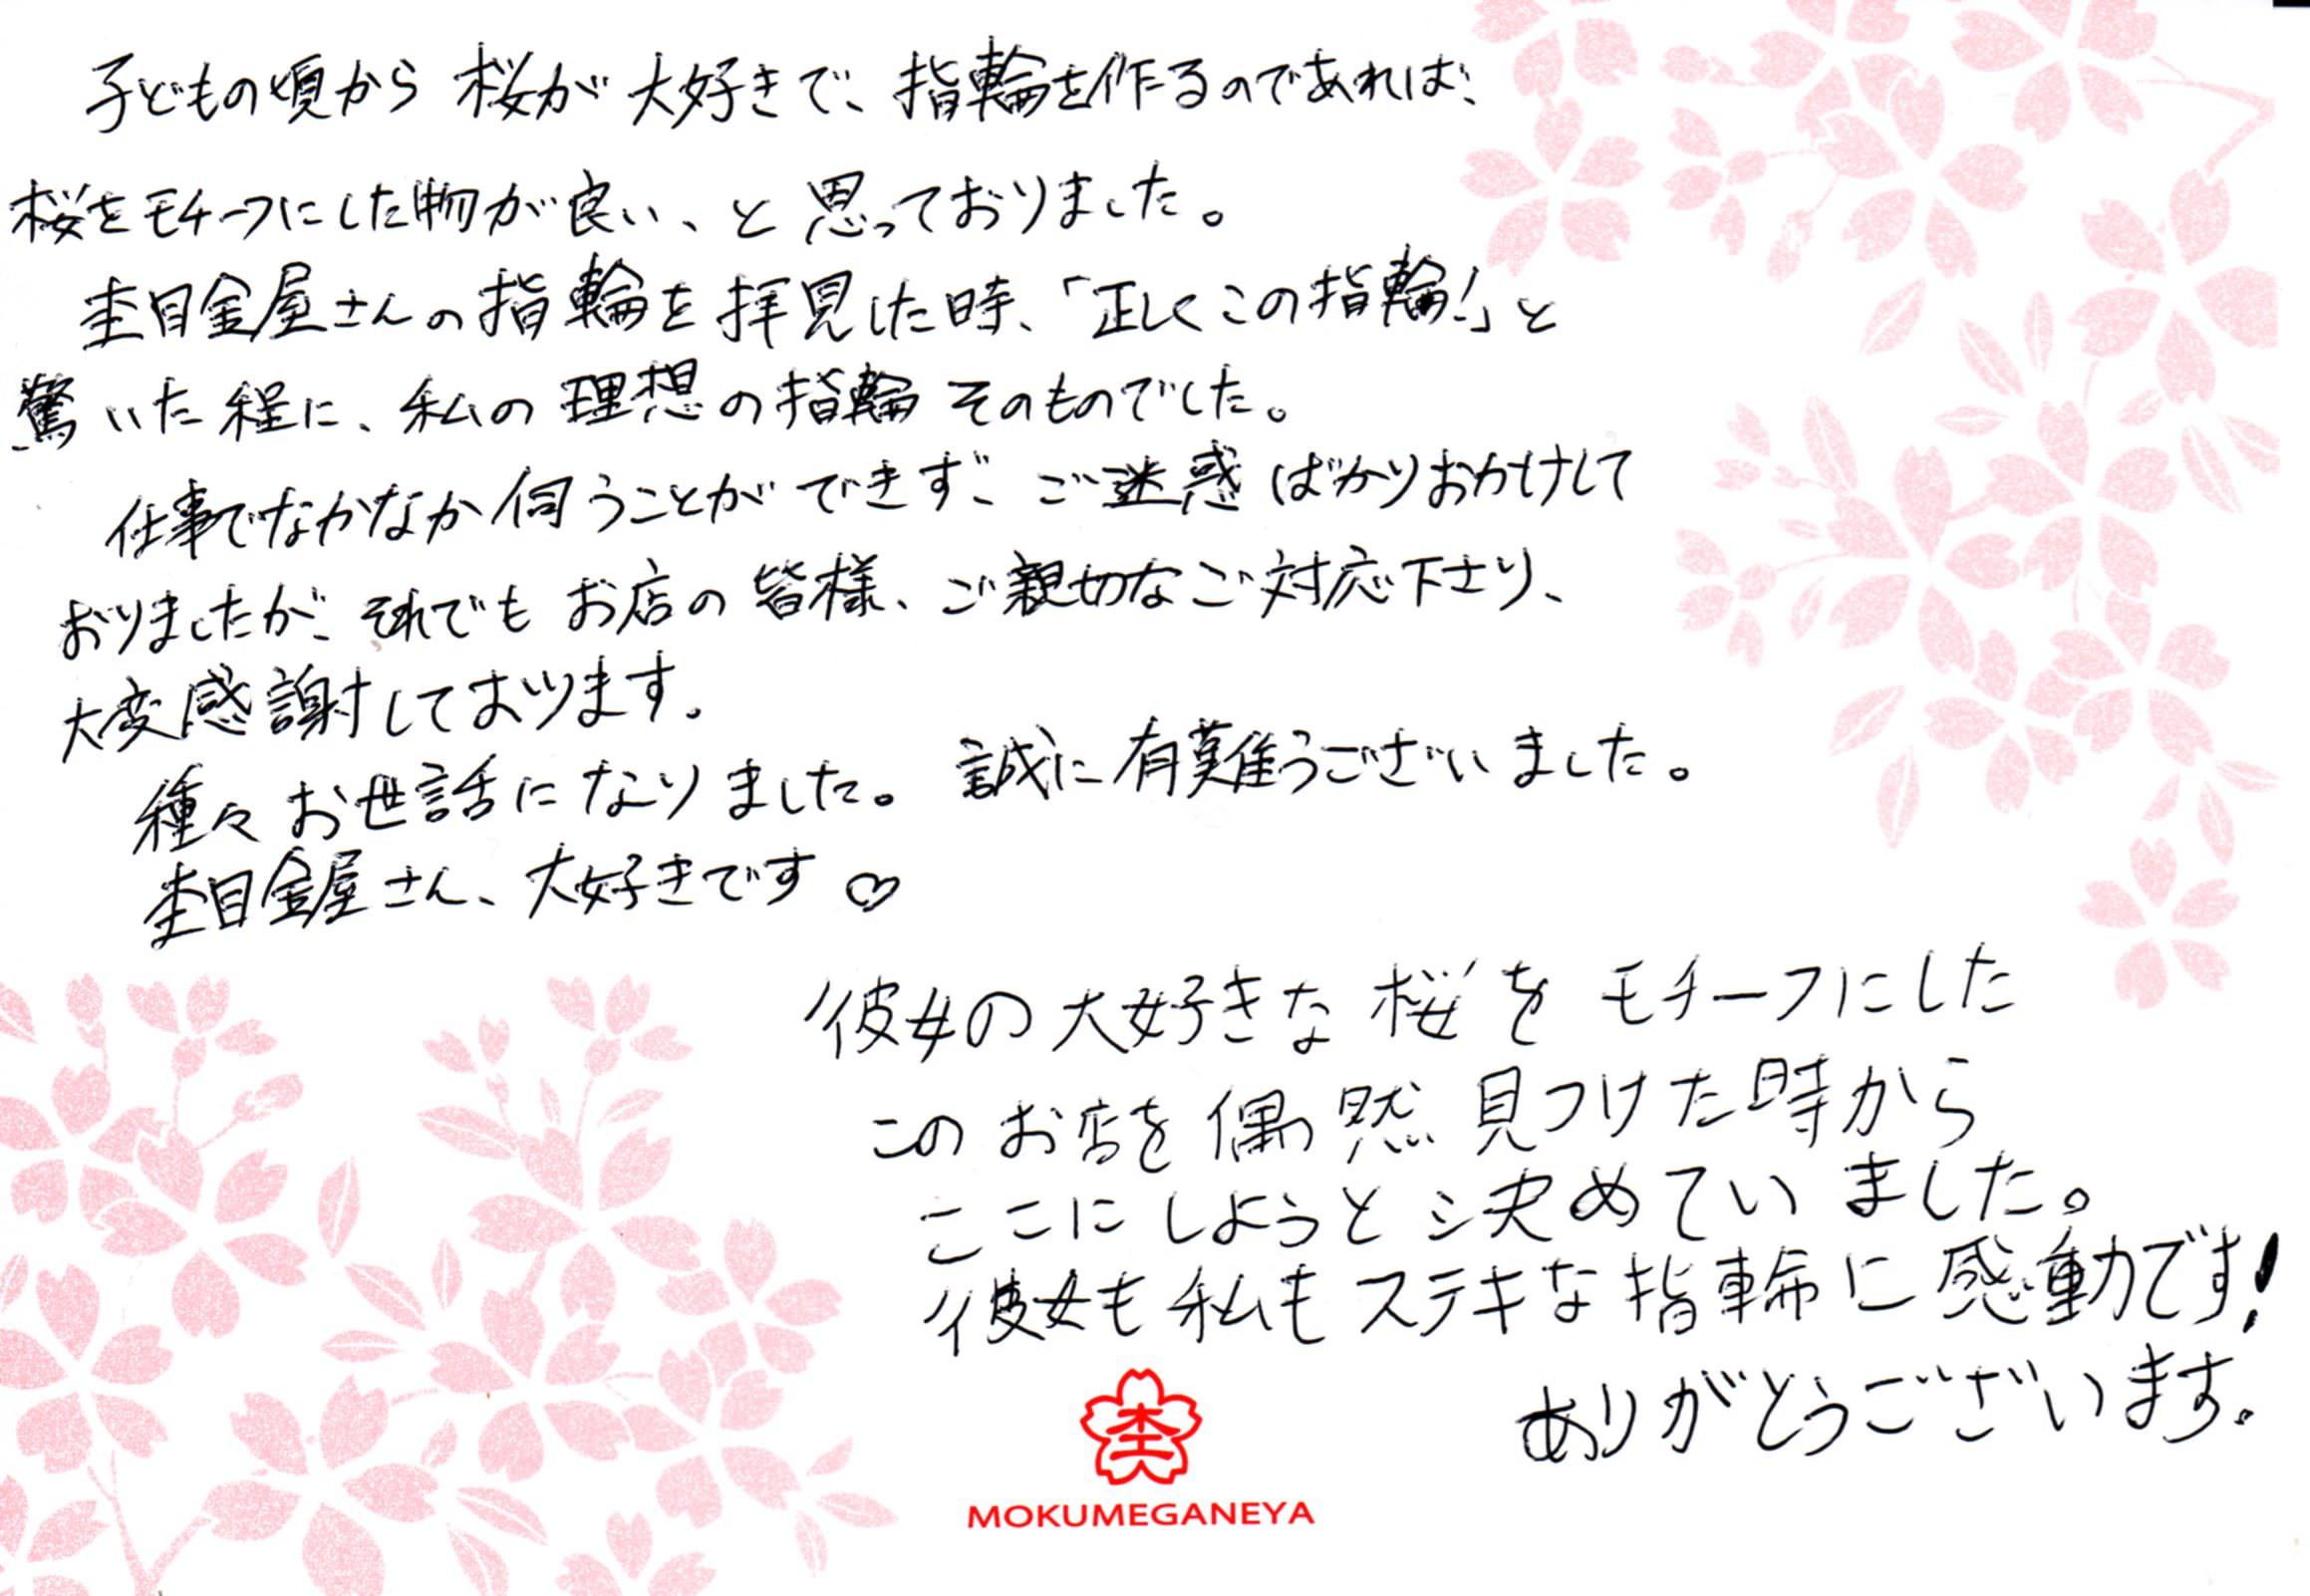 子どもの頃から桜が大好きで、指輪を作るのであれば、
桜をモチーフにした物が良い、と思っておりました。
杢目金屋さんの指輪を拝見した時、「正しくこの指輪！」と
驚いた程に、私の理想の指輪そのものでした。
仕事でなかなか伺うことができず、ご迷惑ばかりおかけして
おりましたが、それでもお店の皆様、ご親切なご対応下さり、
大変感謝しております。
種々お世話になりました。誠に有難うございました。
杢目金屋さん、大好きです♡
彼女の大好きな桜をモチーフにした
このお店を偶然見つけた時から
ここにしようと決めていました。
彼女も私もステキな指輪に感動です！
ありがとうございます。
杢
MOKUMEGANEYA